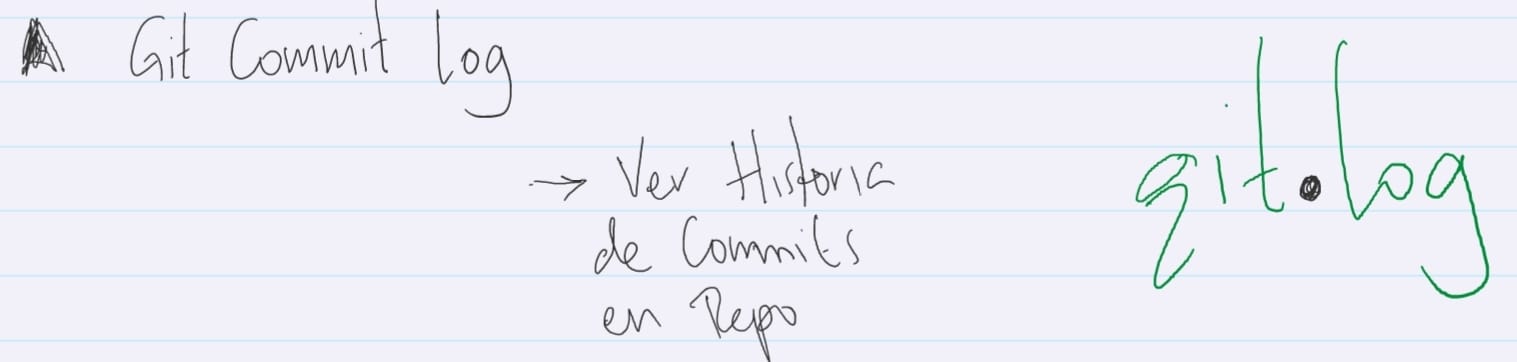 Git Commit Log
→ Ver Historia
de Commits
en Repo
git.log